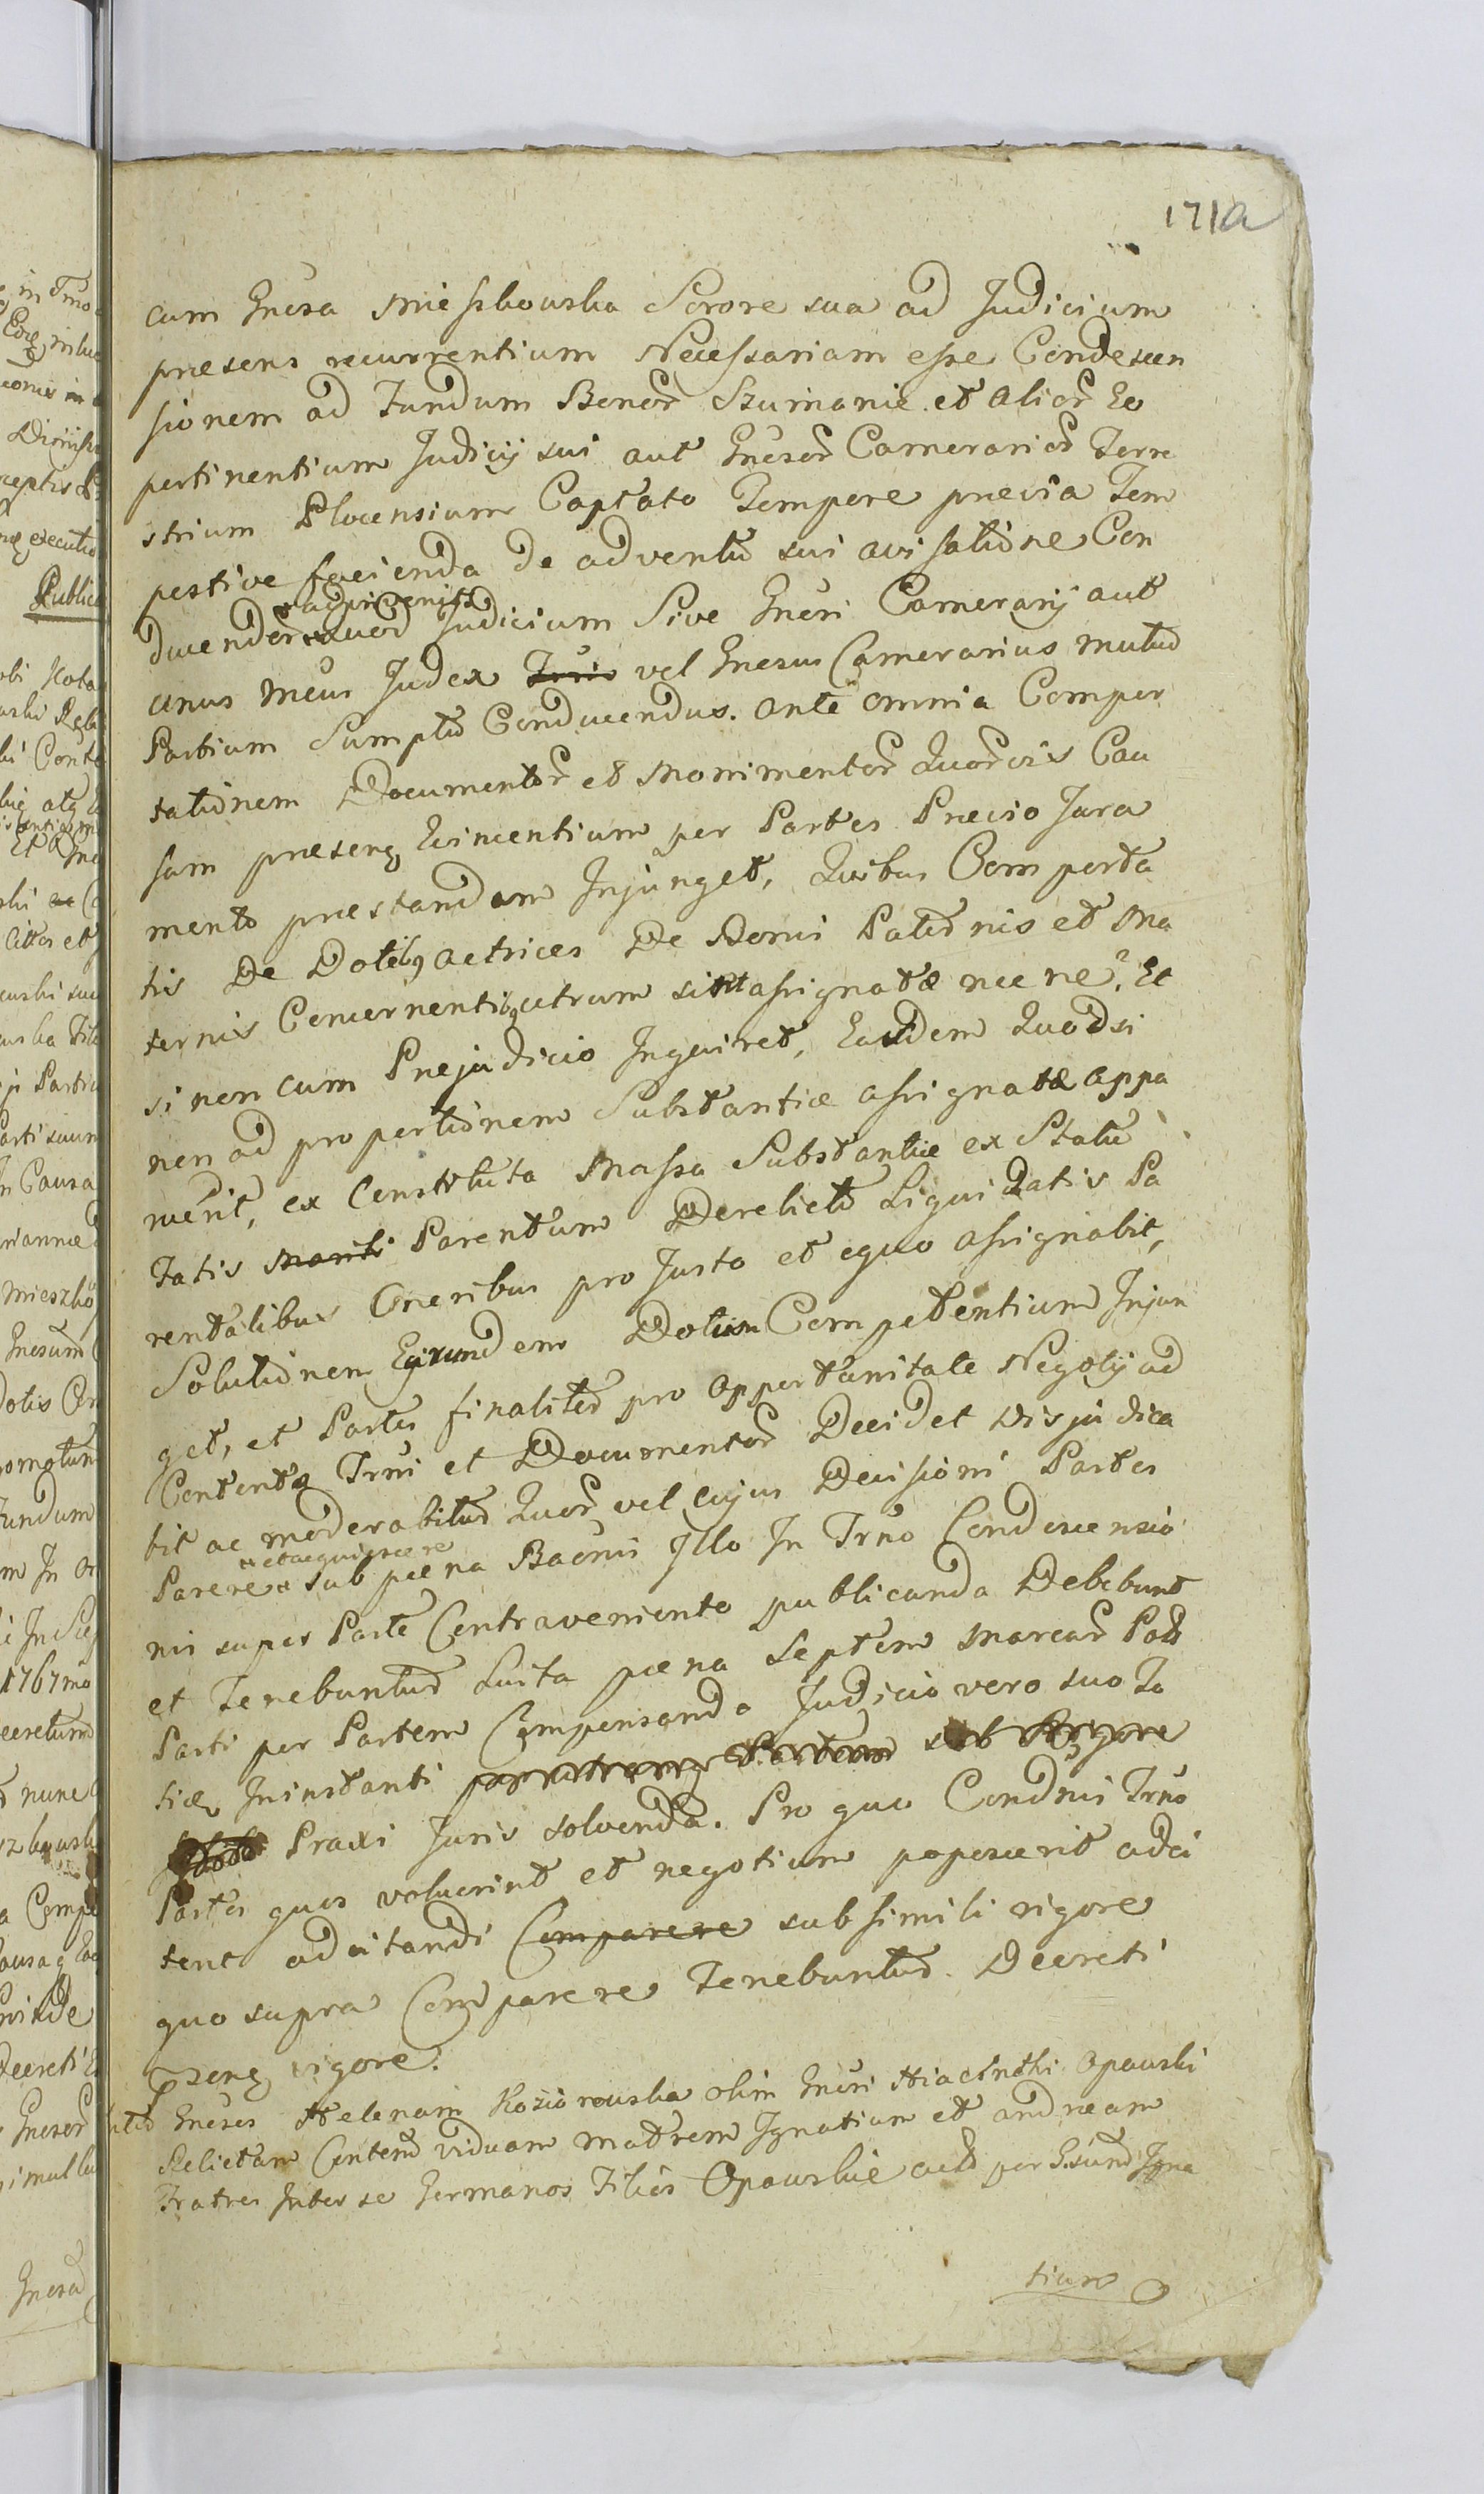 171a
cum Gnesa Mieszkowska Sorore sua ad Judicium
praesens recurrentium Necessariam esse Condescen
sionem ad Fundum Bonor Szumanie et alior Eo
pertinentium Judicij sui aut Gnesor Camerarior Terre
strium Plocensium Captato Tempore previa Tem
pestive facienda de adventu sui avisatione Con
ducendor Quod Judicium Sive Gnesi Camerarij aut
unus meus Judex vel Gnesus Camerarius mutuo
Partium Sumptu Conducendus. ante omnia Compor
tationem Documentor et Monimentor Quorvis Cau
sam praesenq Concernentium per Partes Previo Jura
mento praestandam Injunget, Quibus Comporta
tis De Dotibq actrices De Bonis Paternis et Ma
ternis Concernentibq utrum sint assignatae nec ne? Et
si non cum Prejudicio Inquiret, Easdem Quodsi
non ad proportionem Substantiae assignatae appa
ruerit, ex Constituta Massa Substantiae ex Statu
Fatis Mariti Parentum Derelicto Liquidatis Pa
rentalibus Oneribus pro Justo et equo assignabit,
Solutionem Earumdem Dotium Competentium Injun
get, et Partes finaliter pro opportunitate Negotij ad
Contenta Trni et Documentor Decidet Disjudica
bit ac moderabitur Quor vel cujus Decisioni Partes
et acquiescere
Parere sub paena Baonis Illo In Trno Condescensio
nis super Parte Contraveniente publicanda Debebunt
et Tenebuntur Luita paena Septem Marcar Pol
Parti per Partem Compensanda Judicio vero suo To
tieq Ininstanti
Praxi Juris solvenda. Pro quo Condnis Trno
Partes quos voluerint et negotium poposcerit adci
tent adcitandi Comparere sub simili rigore
quo supra Comparere Tenebuntur. Decreti
psenq vigore.
Gnesos Helenam Koziorowska olim Gnesi Hiacinthi Opawski
Relictam Conten viduam matrem Ignatium et andream
Fratres Inter se Germanos Filios Opawskie per Gsum Igna
tium